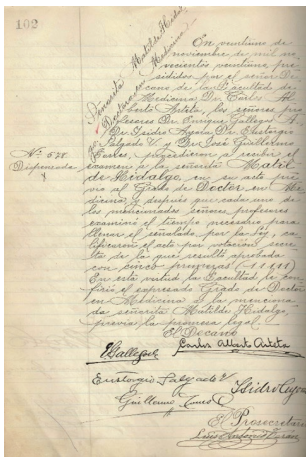 102
Señorita Matilde Hidalgo
Doctora en
Medicina
En veintiuno de
noviembre de mil no-
vecientos veintiuno pre-
sididos por el señor De-
cano de la Facultad de
Medicina Dr. Carlos Al-
berto Arteta, los señores pro-
fesores Dr. Enrique Gallegos A.
Dr. Isidro Ayora Dr. Eustorgio
Salgado V. y Dr. José Guillermo
procedieron a recibir el
examen a la señorita Matil-
de Hidalgo, en su acto pre-
vio al Grado de Doctor en Me-
dicina y después que cada uno de
los mencionados señores profesores
examinó el tiempo necesario para
llenar el señalado por la ley, ca-
lificaron el acto por votación secre-
ta de la que resultó aprobada
con cinco primeras (1 1 1 1 1)
En esta virtud la Facultad le con-
firió el expresado Grado de Doctor
en Medicina a la menciona-
da señorita Matilde Hidalgo,
previa la promesa legal
Nº 578
El Decano
Carlos Alberto Arteta
Eustorgio Salgado V
Isidro Ayora
Guillermo
El Prosecretario